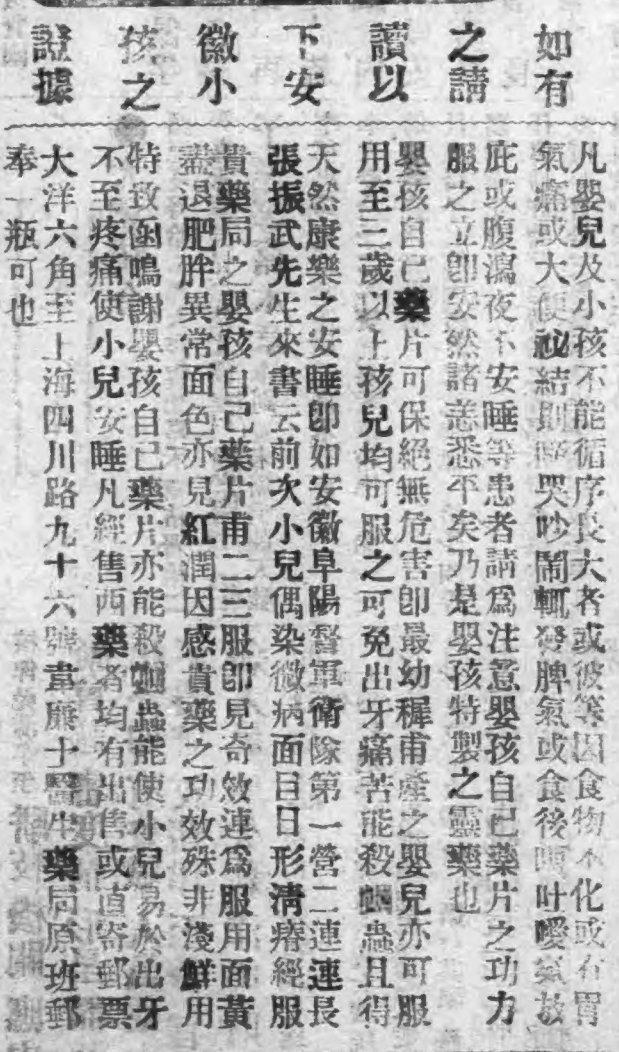 如有
之請
讀以
下安
徽小
孩之
證據
凡嬰兒及小孩不能循序長大者或彼等因食物不化或有胃
氣痛或大便祕結則啼哭吵鬧輒發脾氣或食後嘔吐噯氣放
庇或腹瀉夜不安睡等患者請爲注意嬰孩自己藥片之功力
服之立卽安然諸恙悉平矣乃是嬰孩特製之靈藥也
嬰孩自己藥片可保絕無危害卽最幼穉甫產之嬰兒亦可服
用至三歲以上孩兒均可服之可免出牙痛苦能殺蟲且得
天然康樂之安睡卽如安徽阜陽督軍衛隊第一營二連連長
張振武先生來書云前次小兒偶染微病面目日形清瘠經服
貴藥局之嬰孩自己藥片甫二三服卽見奇效連爲服用面黃
盡退肥胖異常面色亦見紅潤因感貴藥之功效殊非淺鮮用
特致函鳴謝嬰孩自己藥片亦能殺蟲能使小兒易於出牙
不至疼痛使小兒安睡凡經售西藥者均有出售或直寄郵票
大洋六角至上海四川路九十六號韋廉士醫生藥局原班郵
奉一瓶可也